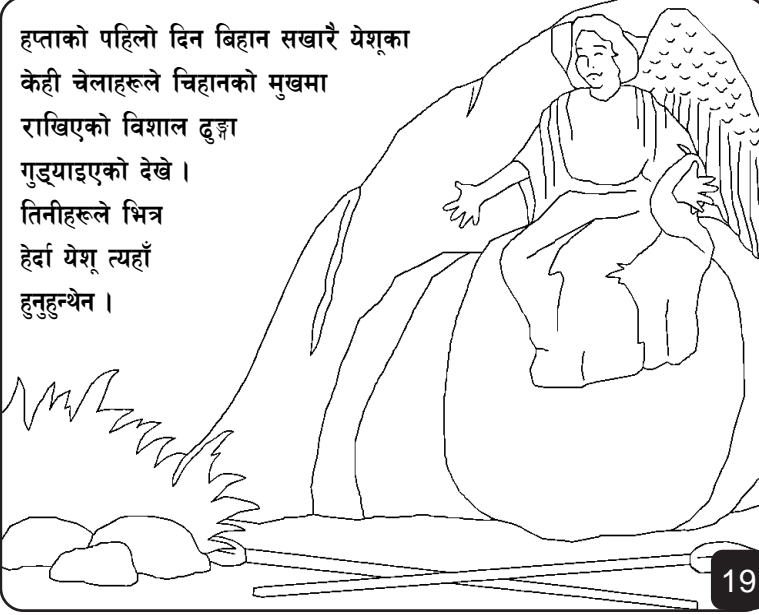 हप्ताको पहिलो दिन बिहान सखारै येशूका
केही चेलाहरूले चिहानको मुखमा
राखिएको विशाल ढुङ्गा
गुड्याइएको देखे ।
तिनीहरूले भित्र
हेर्दा येशू त्यहाँ
हुनुहुन्थेन ।
19